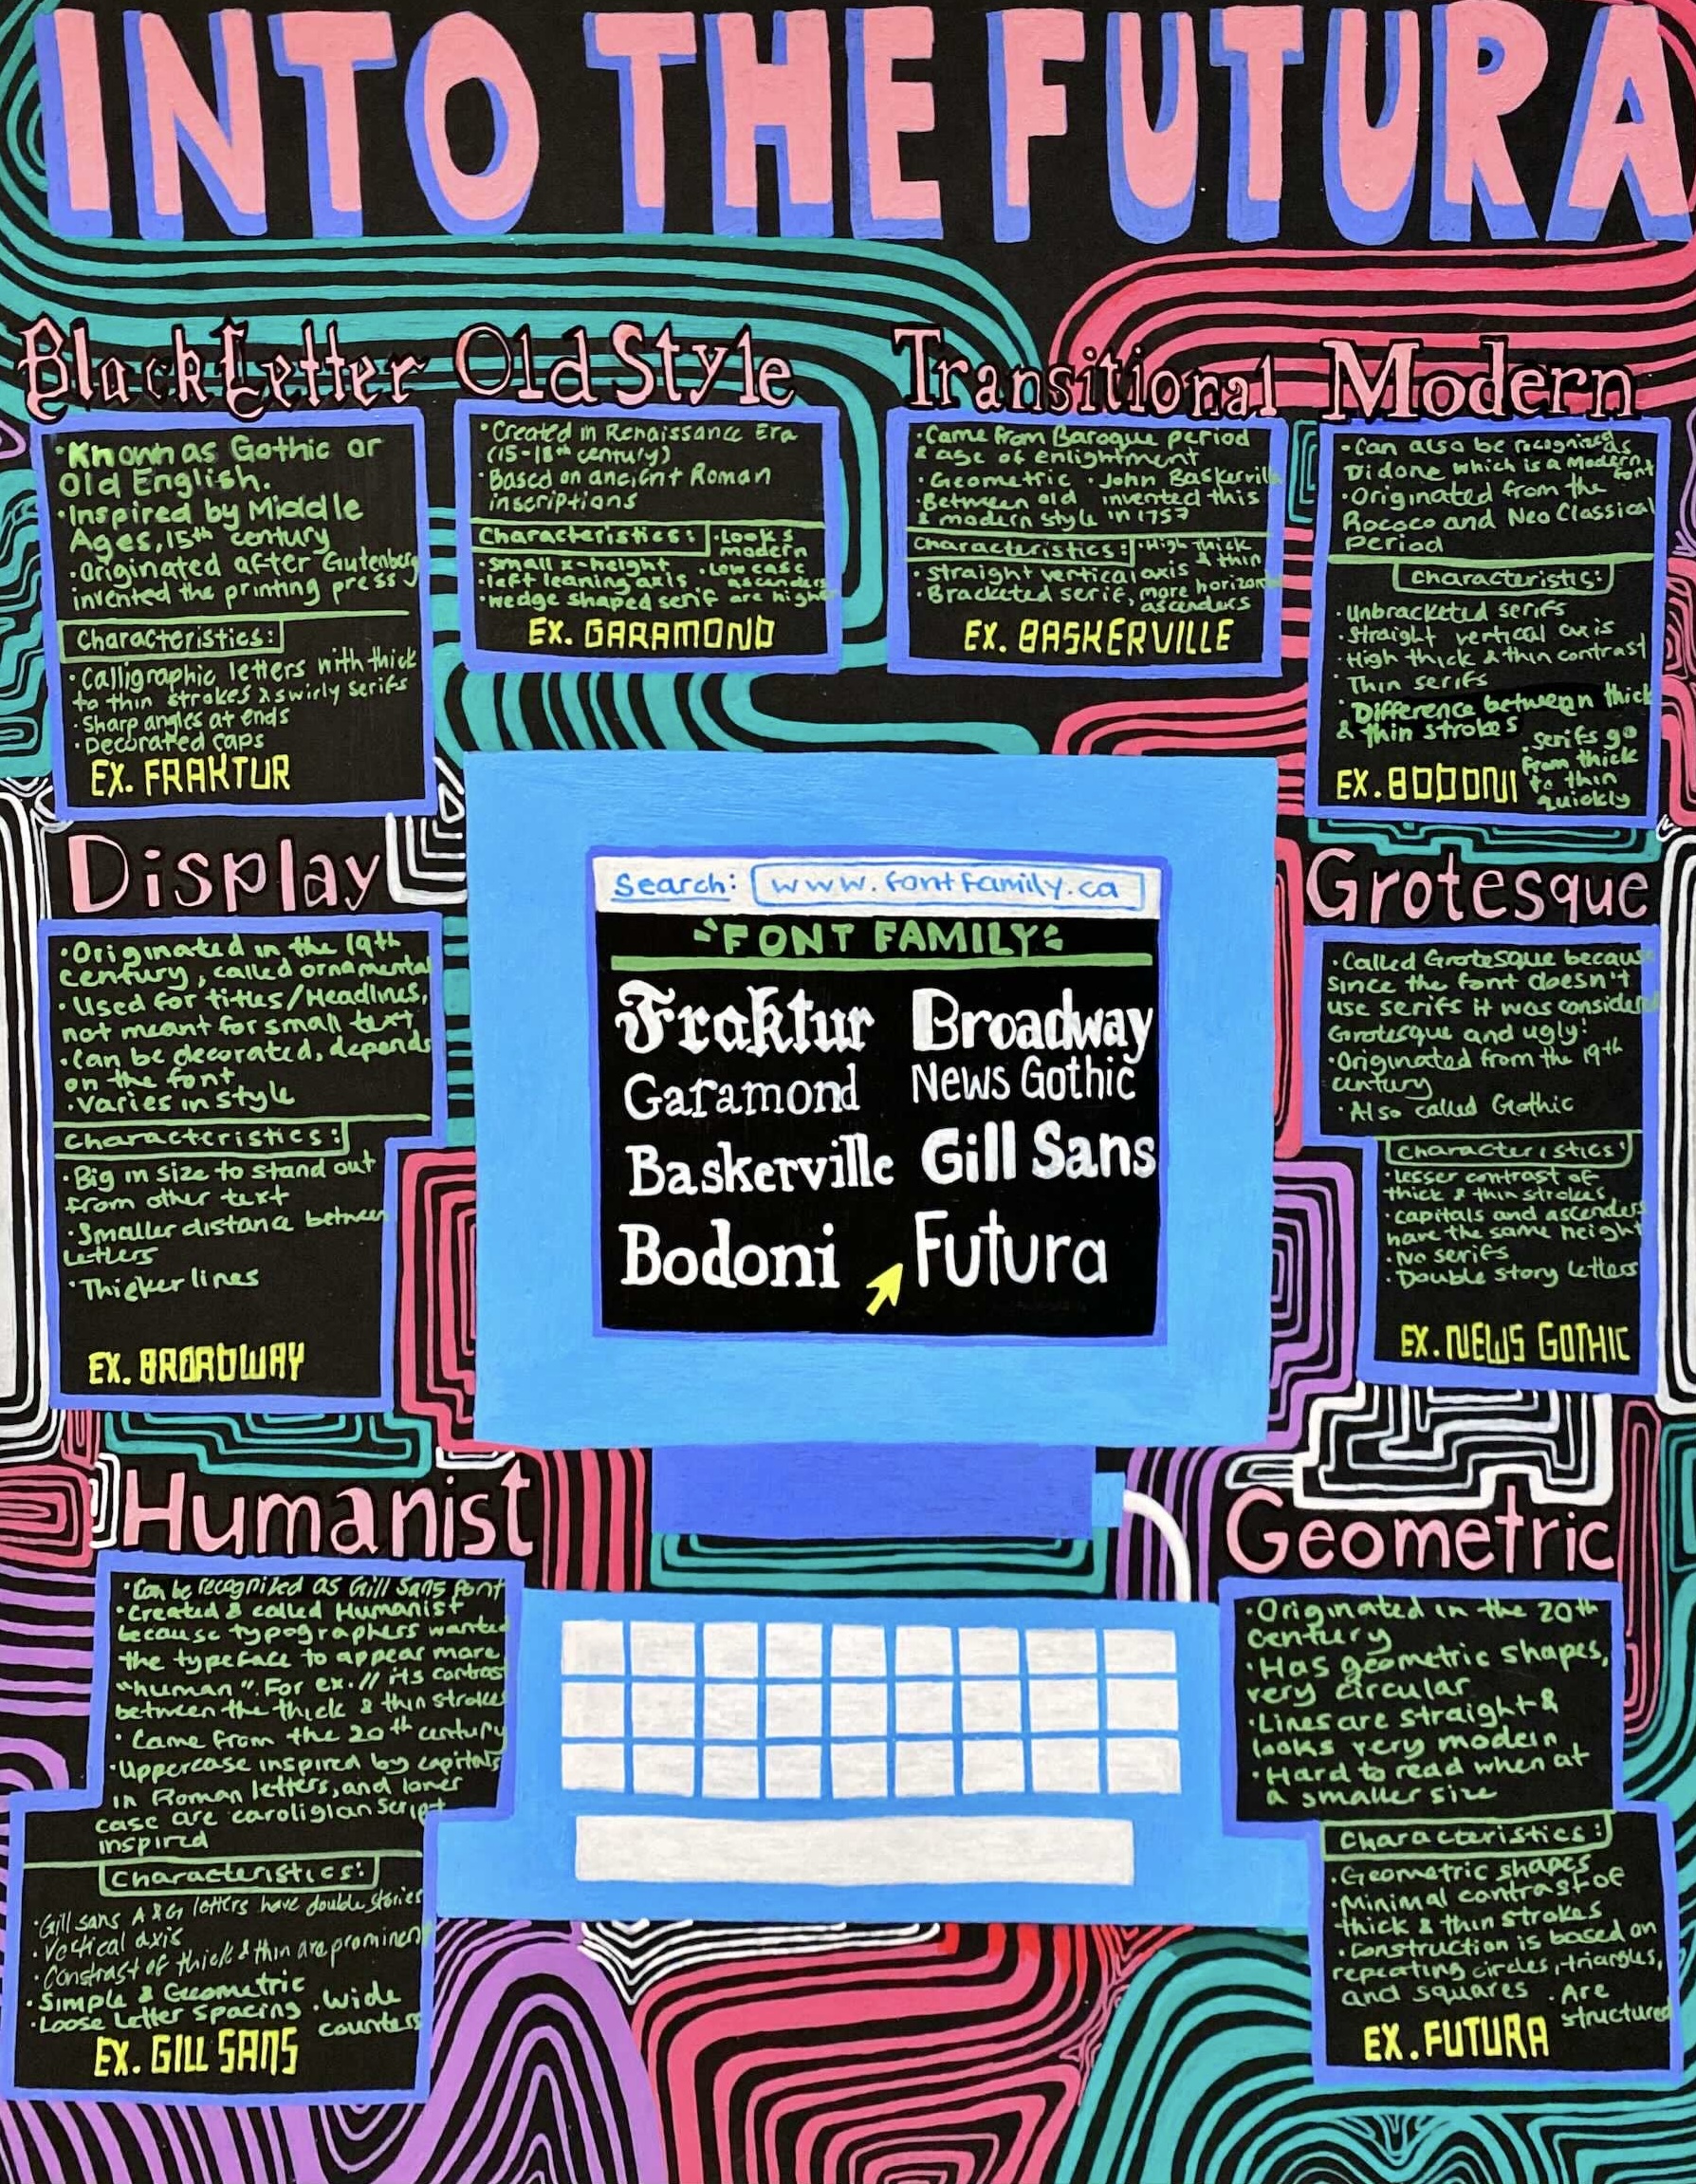 INTO THE FUTURA
BlackLetter
• Known as Gothic or
Old English.
• Inspired by Middle
Ages, 15th century
• Originated after Gutenberg
invented the printing press
Characteristics:
• Calligraphic letters with thick
to thin strokes & swirly serifs
• Sharp angles at ends
• Decorated caps
EX. FRAKTUR
Old Style
• Created in Renaissance Era
(15-18th century)
• Based on ancient Roman
inscriptions
Characteristics: • Looks
modern
• small x-height • Low case
• left leaning axis ascenders
• wedge shaped serif are higher
EX. GARAMOND
Transitional
• Came from Baroque period
& age of enlightment
• Geometric • John Baskerville
• Between old invented this
& modern style in 1757
Characteristics: • High thick
& thin
• Straight vertical axis
• Bracketed serif, more horizontal
ascenders
EX. BASKERVILLE
Modern
• Can also be recognized as
Didone which is a Modern font
• Originated from the
Rococo and Neo Classical
period
Characteristics:
• Unbracketed serifs
• Straight vertical axis
• High thick & thin contrast
• Thin serifs
• Difference between thick
& thin strokes
• serifs go
from thick
to thin
quickly
EX. BODONI
Display
• Originated in the 19th
century, called ornamental
• Used for titles/Headlines,
not meant for small text
• Can be decorated, depends
on the font
• Varies in style
Characteristics:
• Big in size to stand out
from other text
• Smaller distance between
Letters
• Thicker lines
EX. BROADWAY
Search: www.fontfamily.ca
FONT FAMILY
Fraktur Broadway
Garamond News Gothic
Baskerville Gill Sans
Bodoni Futura
Grotesque
• Called Grotesque because
since the font doesn't
use serifs it was considered
Grotesque and ugly!
• Originated from the 19th
century
• Also called Gothic
Characteristics:
• lesser contrast of
thick & thin strokes
• capitals and ascenders
have the same height
• No serifs
• Double story letters
EX. NEWS GOTHIC
Humanist
• Can be recognized as Gill Sans font
• Created & called Humanist
because typographers wanted
the typeface to appear more
"human". For ex.// its contrast
between the thick & thin strokes
• Came from the 20th century
• Uppercase inspired by capitals
in Roman letters, and lower
case are caroligian script
inspired
Characteristics:
• Gill sans A & G letters have double stories
• Vertical axis
• Constrast of thick & thin are prominent
• Simple & Geometric
• Loose Letter spacing • wide
counters
EX. GILL SANS
Geometric
• Originated in the 20th
century
• Has geometric shapes,
very circular
• Lines are straight &
looks very modern
• Hard to read when at
a smaller size
Characteristics:
• Geometric shapes
• Minimal contrast of
thick & thin strokes
• Construction is based on
repeating circles, triangles,
and squares • Are
structured
EX. FUTURA